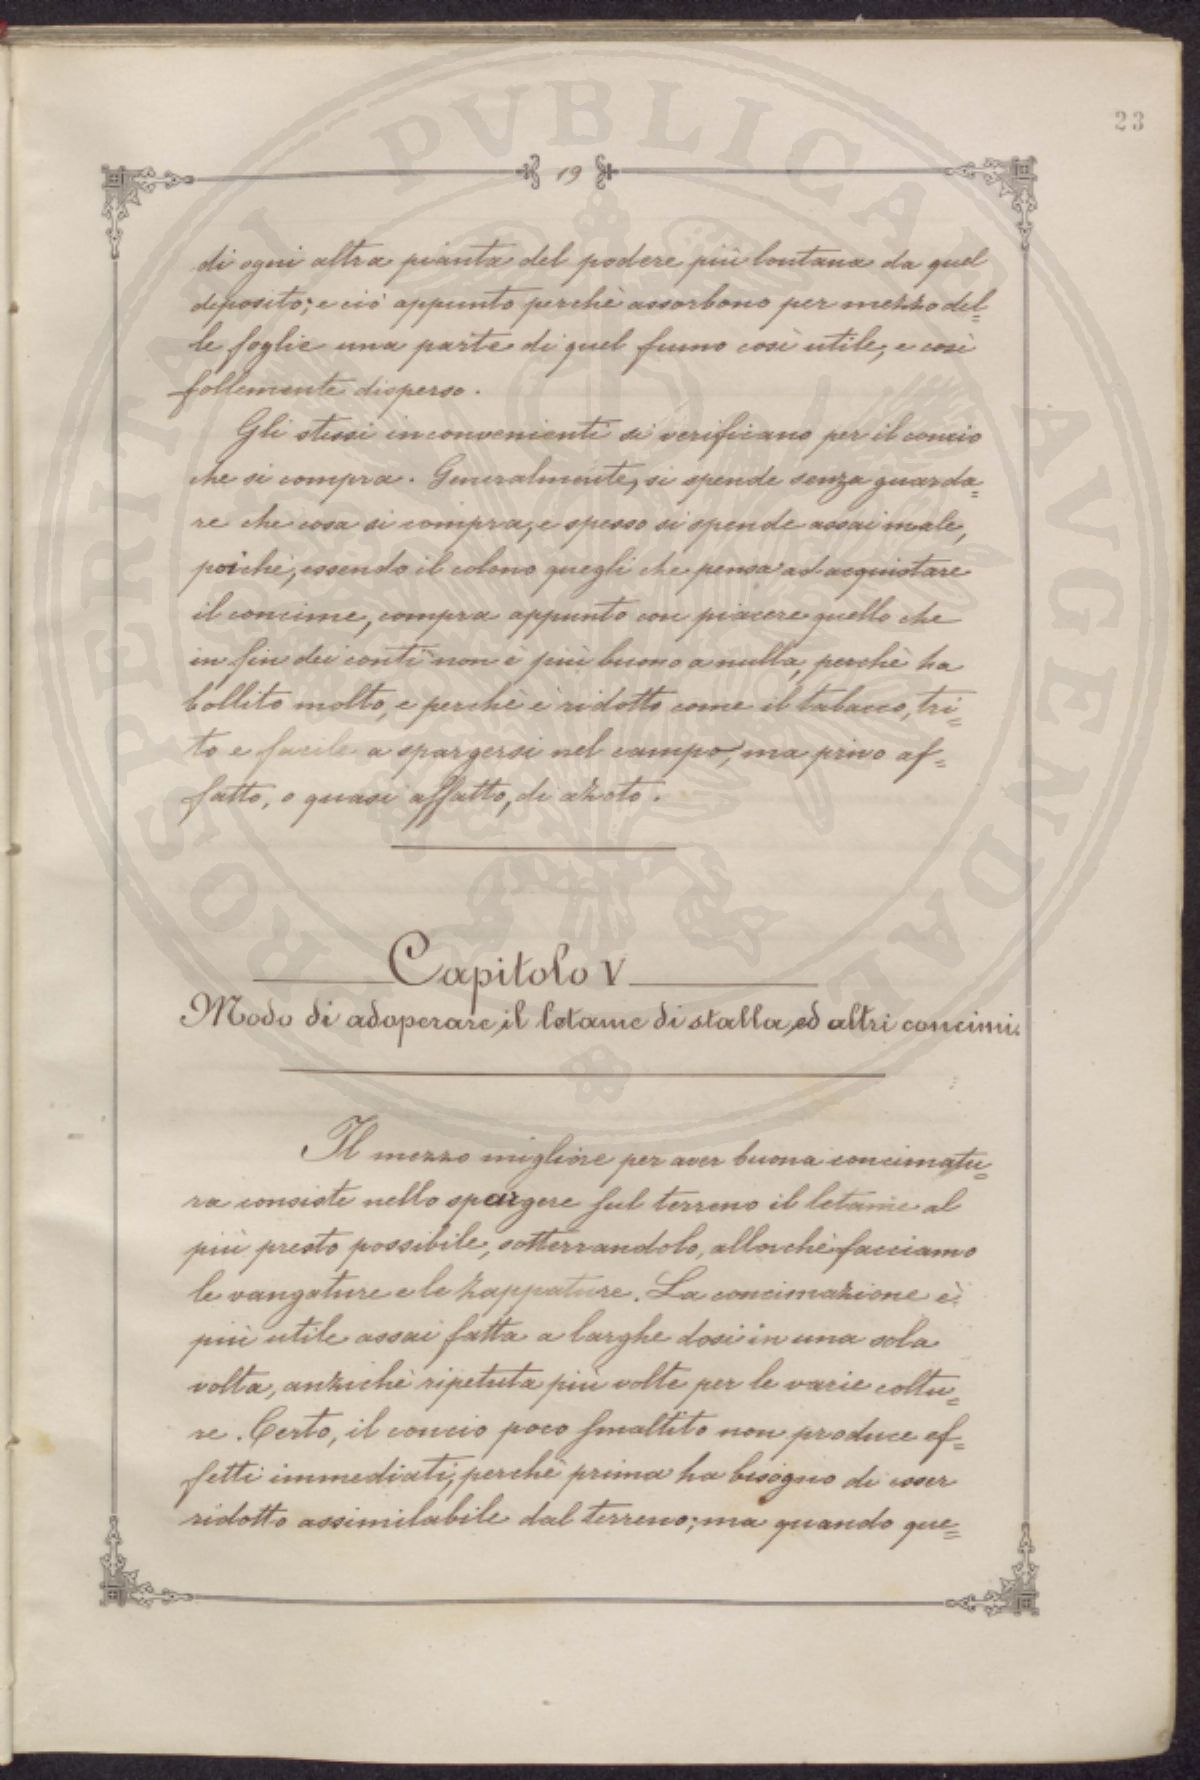 23
19
di ogni altra pianta del podere più lontana da quel
deposito; e ciò appunto perchè assorbono per mezzo del=
le foglie una parte di quel fumo così utile, e così
follemente disperso.
Gli stessi inconvenienti si verificano per il concio
che si compra. Generalmente, si spende senza guarda=
re che cosa si compra, e spesso si spende assai male,
poichè, essendo il colono quegli che pensa ad acquistare
il concime, compra appunto con piacere quello che
in fin dei conti non è più buono a nulla, perchè ha
bollito molto, e perchè è ridotto come il tabacco, tri=
to e facile a spargersi nel campo, ma privo af=
fatto, o quasi affatto, di azoto.
Capitolo V
Modo di adoperare il letame di stalla, ed altri concimi.
Il mezzo migliore per aver buona concimatu=
ra consiste nello spargere sul terreno il letame al
più presto possibile, sotterrandolo, allorchè facciamo
le vangature e le zappature. La concimazione è
più utile assai fatta a larghe dosi in una sola
volta, anzichè ripetuta più volte per le varie coltu=
re. Certo, il concio poco smaltito non produce ef=
fetti immediati, perchè prima ha bisogno di esser
ridotto assimilabile dal terreno; ma quando que=
PVBLICAE AVGENDAE PROSPERITATI